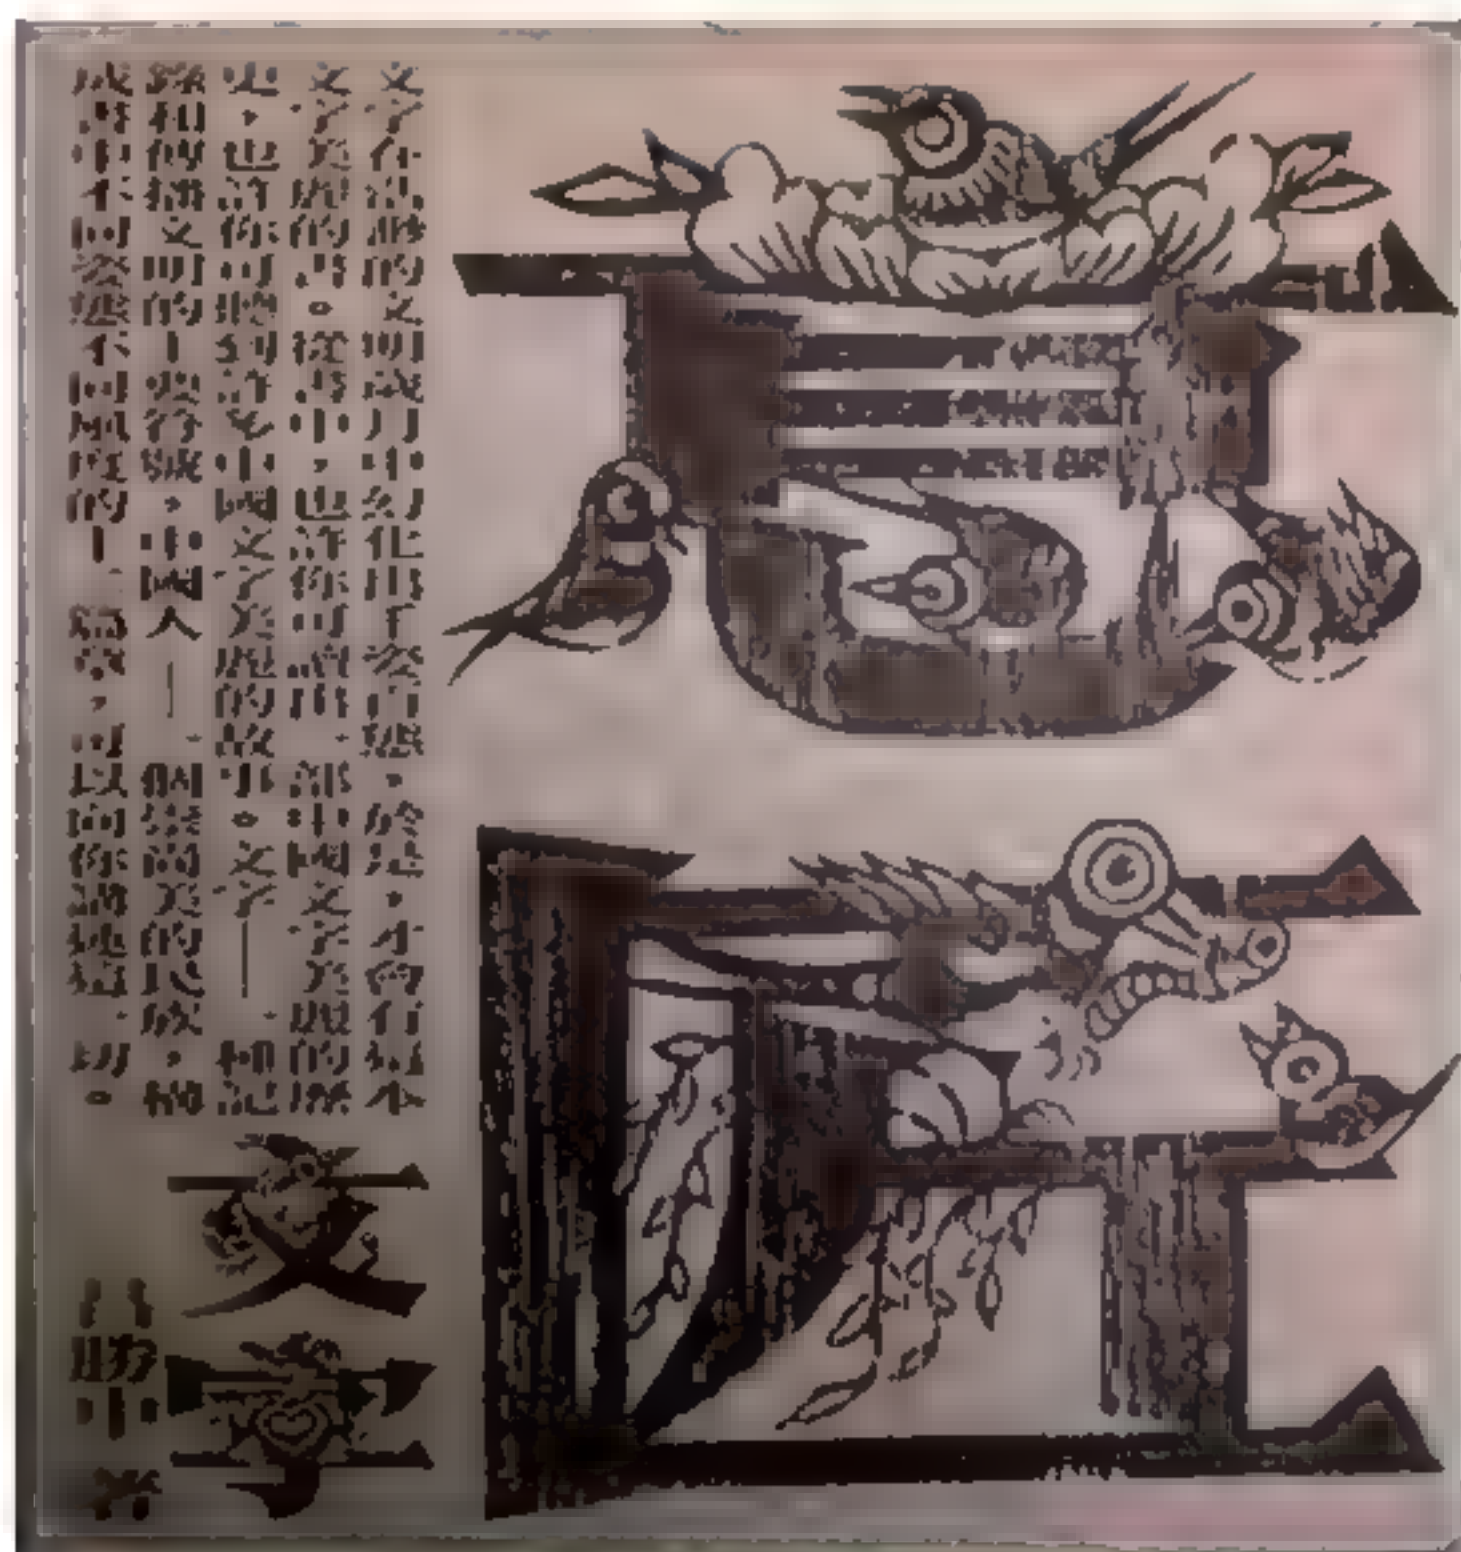 文字在浩渺的文明歲月中幻化出千姿百態，於是，才會有這本
文字美麗的書。從書中，也許你可讀出一部中國文字美麗的歷
史，也許你可聽到許多中國文字美麗的故事。文字——一種記
錄和傳播文明的工具符號，中國人——一個崇尚美的民族，構
成書中不同姿態不同風度的十二篇章，可以向你講述這一切。
文字
呂勝中 著